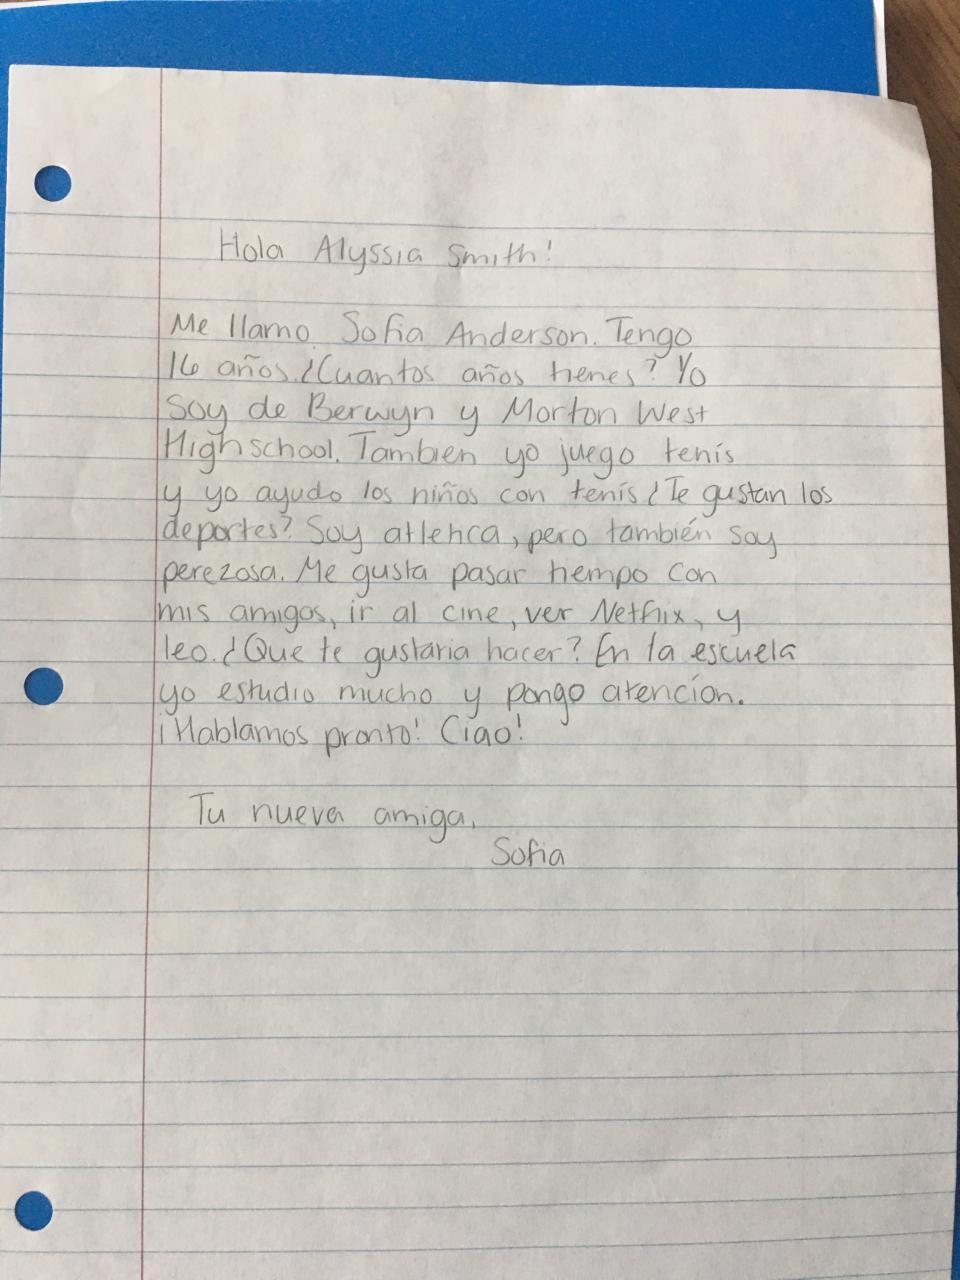 Hola Alyssia Smith!
Me llamo Sofia Anderson. Tengo
16 años. ¿Cuantos años tienes? Yo
soy de Berwyn y Morton West
Highschool. Tambien yo juego tenís
y yo ayudo los niños con tenís ¿Te gustan los
deportes? Soy atletica, pero también soy
perezosa. Me gusta pasar tiempo con
mis amigos, ir al cine, ver Netflix, y
leo. ¿Que te gustaria hacer? En la escuela
yo estudio mucho y pongo atencíon.
¡Hablamos pronto! Ciao!
Tu nueva amiga,
Sofia